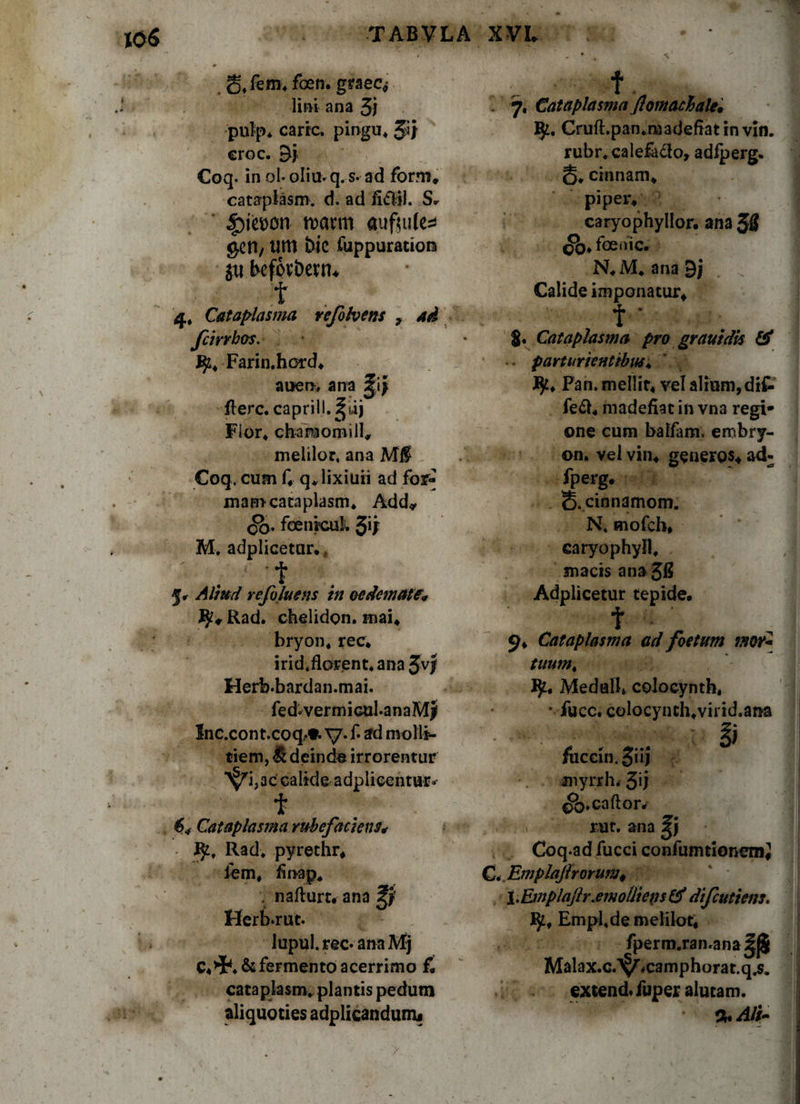 106 TABVLA XVI.
℥. ſem. fœn. græc.
lini ana ʒj
pulp. caric. pingu. ℥ij
croc. ℈j
Coq. in ol. oliu. q. s. ad form.
cataplasm. d. ad fictil. S.
Hievon warm aufzule=
gen, um die ſuppuration
zu befördern.
†
4. Cataplasma reſolvens, ad
ſcirrhos.
℞. Farin. hord.
auen. ana ℥ij
ſterc. caprill. ℥iij
Flor. chamomill.
melilot. ana Mß
Coq. cum ſ. q. lixiuii ad for-
mam cataplasm. Add.
fœnicul. ʒij
M. adplicetur.
†
5. Aliud reſoluens in oedemate.
℞. Rad. chelidon. mai.
bryon. rec.
irid. florent. ana ʒvj
Herb. bardan. mai.
ſed. vermicul. ana Mj
Inc. cont. coq. 🜄. ſ. ad molli-
tiem, & deinde irrorentur
i, ac calide adplicentur.
†
6. Cataplasma rubefaciens.
℞. Rad. pyrethr.
ſem. ſinap.
naſturt. ana ℥j
Herb. rut.
lupul. rec. ana Mj
c. & fermento acerrimo f.
cataplasm. plantis pedum
aliquoties adplicandum.
†
7. Cataplasma ſtomachale.
℞. Cruſt. pan. madefiat in vin.
rubr. calefacto, adſperg.
cinnam.
piper.
caryophyllor. ana ʒß
fœnic.
N. M. ana ℈j
Calide imponatur.
†
8. Cataplasma pro grauidis &
parturientibus.
℞. Pan. mellit. vel alium, diſ-
ſect. madefiat in vna regi-
one cum balſam. embry-
on. vel vin. generoſ. ad-
ſperg.
cinnamom.
N. moſch.
caryophyll.
macis ana ʒß
Adplicetur tepide.
†
9. Cataplasma ad foetum mor-
tuum.
℞. Medull. colocynth.
ſucc. colocynth. virid. ana
℥j
ſuccin. ʒiij
myrrh. ʒij
caſtor.
rut. ana ℥j
Coq. ad ſucci conſumtionem.
C. Emplaſtrorum.
1. Emplaſtr. emolliens & diſcutiens.
℞. Empl. de melilot.
ſperm. ran. ana ℥ß
Malax. c. camphorat. q. s.
extend. ſuper alutam.
2. Ali-